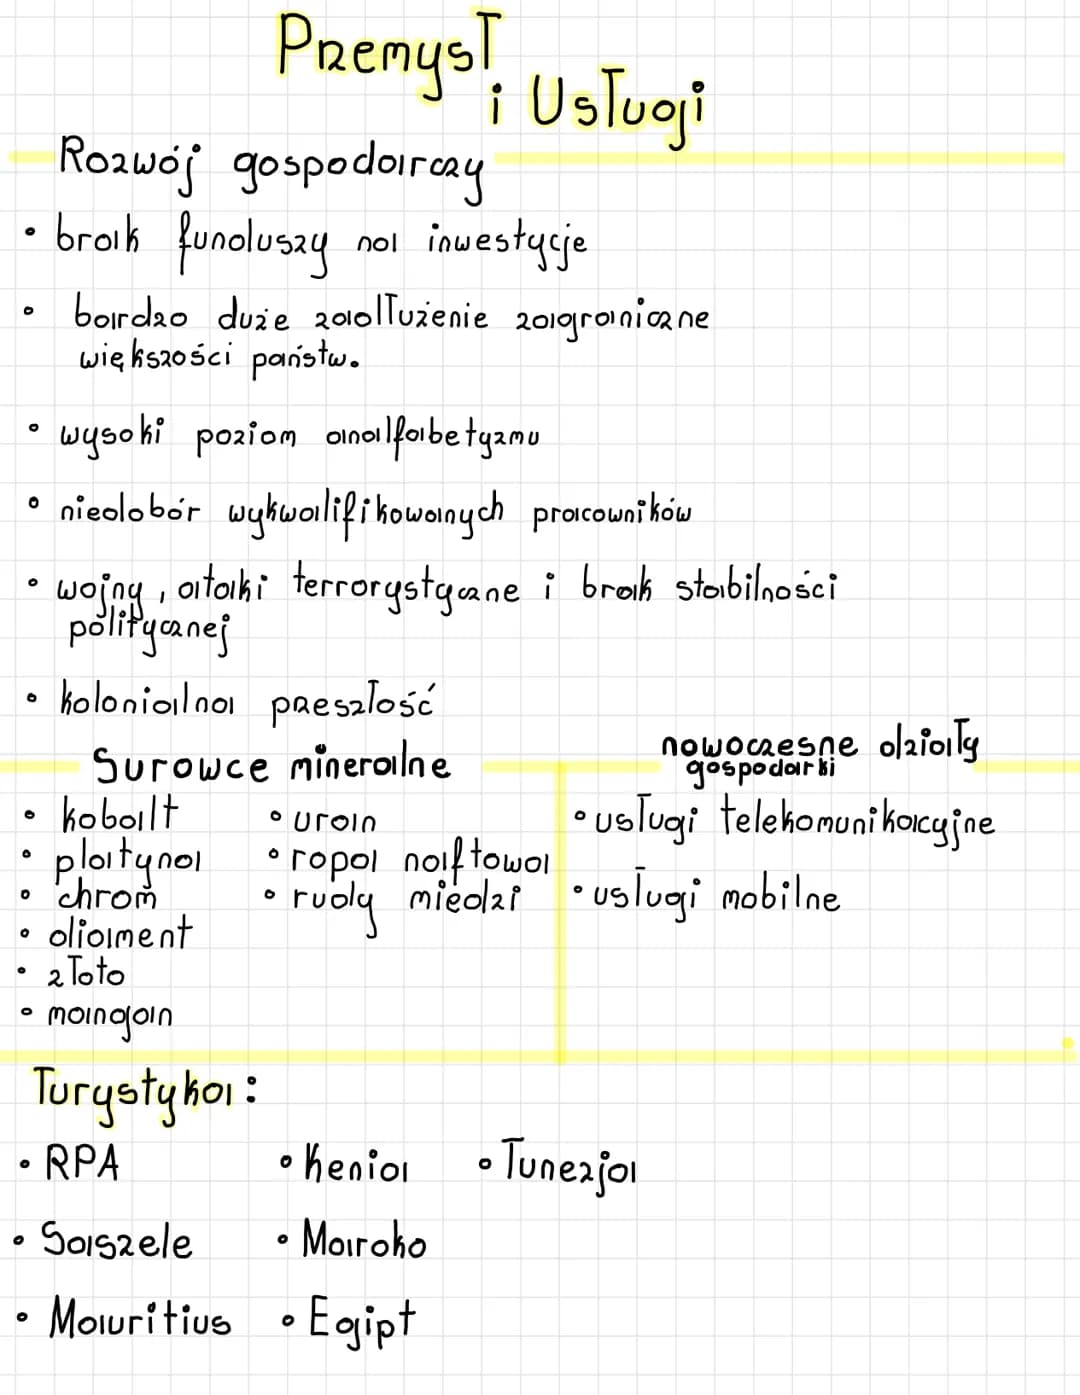 Przemysł
i Usługi
Rozwój gospodarczy
• brak funduszy na inwestycje
• bardzo duże zadłużenie zagraniczne
większości państw.
• wysoki poziom analfabetyzmu
• niedobór wykwalifikowanych pracowników
• wojny, ataki terrorystyczne i brak stabilności
politycznej
• kolonialna przeszłość
Surowce mineralne
• kobalt
• platyna
• chrom
• diament
• złoto
• mangan
• uran
• ropa naftowa
• rudy miedzi
nowoczesne działy
gospodarki
• usługi telekomunikacyjne
• usługi mobilne
Turystyka:
• RPA
• Kenia
• Tunezja
• Saszele
• Maroko
• Mauritius
• Egipt